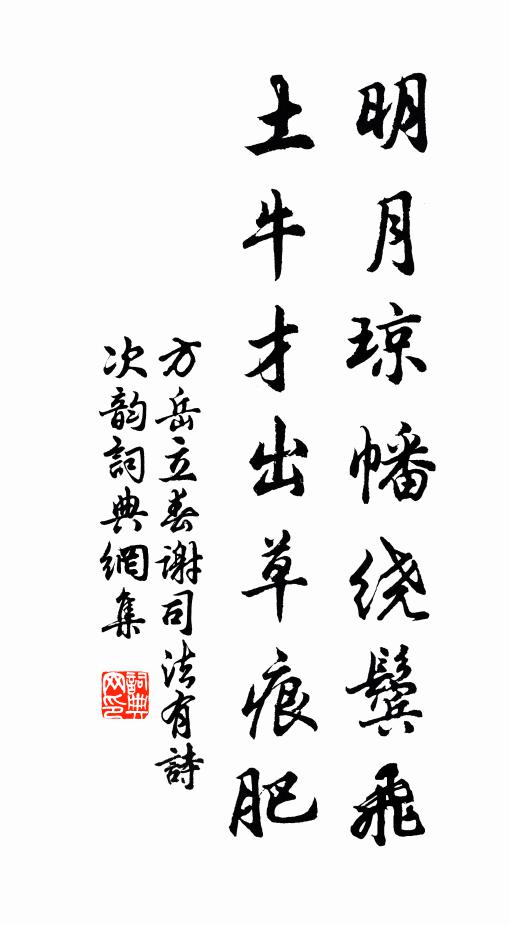 明月琼幡绕鬓飞
土牛才出草痕肥
方岳立春谢司法有詩
次韵詞典網集
詞典网印